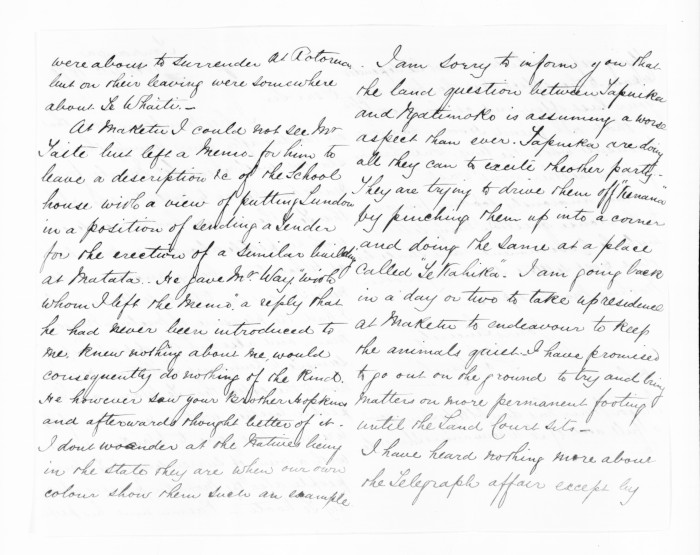 were about to surrender at Rotorua
but on their leaving were somewhere
about Te Whaiti. —
At Maketu I could not see Mr
Taite but left a Memo. for him to
leave a description &c of the School
house with a view of putting Lundon
in a position of sending a Tender
for the erection of a similar building
at Matata. He gave Mr. Way, "with
whom I left the Memo", a reply that
he had never been introduced to
me, knew nothing about me, would
consequently do nothing of the kind.
He however saw your brother Hopkins
and afterwards thought better of it.
I dont wonder at the Natives being
in the state they are when our own
colour show them such an example
. I am sorry to inform you that
the land question between Tapuika
and Ngatimoko is assuming a worse
aspect than ever. Tapuika are doing
all they can to excite the other party.
They are trying to drive them off
by pinching them up into a corner
and doing the same at a place
called "Te Wahika". I am going back
in a day or two to take up residence
at Maketu to endeavour to keep
the animals quiet. I have promised
to go out on the ground to try and bring
matters on more permanent footing
until the Land Court sits —
I have heard nothing more about
the Telegraph affair except by